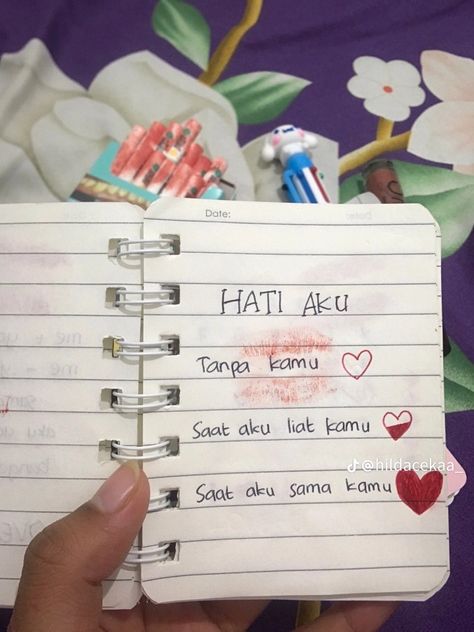 Date:
HATI AKU
Tanpa kamu
Saat aku liat kamu
@hildacekaa_
Saat aku sama kamu